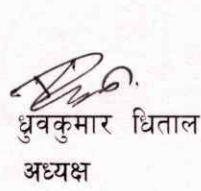 ध्रुवकुमार धिताल
अध्यक्ष